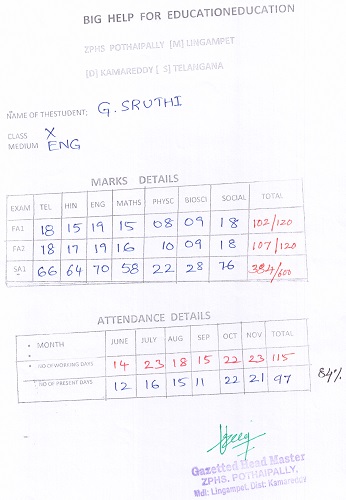 BIG HELP FOR EDUCATIONEDUCATION
ZPHS POTHAIPALLY [M] LINGAMPET
[D] KAMAREDDY [ S] TELANGANA
NAME OF THESTUDENT: G. SRUTHI
CLASS X
MEDIUM ENG
MARKS DETAILS
EXAM TEL HIN ENG MATHS PHYSC BIOSCI SOCIAL TOTAL
FA1 18 15 19 15 08 09 18 102/120
FA2 18 17 19 16 10 09 18 107/120
SA1 66 64 70 58 22 28 76 384/600
ATTENDANCE DETAILS
MONTH JUNE JULY AUG SEP OCT NOV TOTAL
NO OF WORKING DAYS 14 23 18 15 22 23 115
NO OF PRESENT DAYS 12 16 15 11 22 21 97 84%
Gazetted Head Master
ZPHS. POTHAIPALLY,
Mdl: Lingampet, Dist: Kamareddy